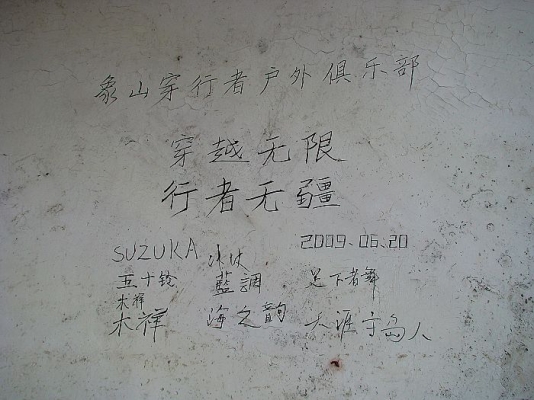 象山穿行者户外俱乐部
穿越无限
行者无疆
SUZUKA 冰冰 2009.06.20
五十铃 藍調 足下者舞
木祥
木祥 海之韵 天涯宁岛人